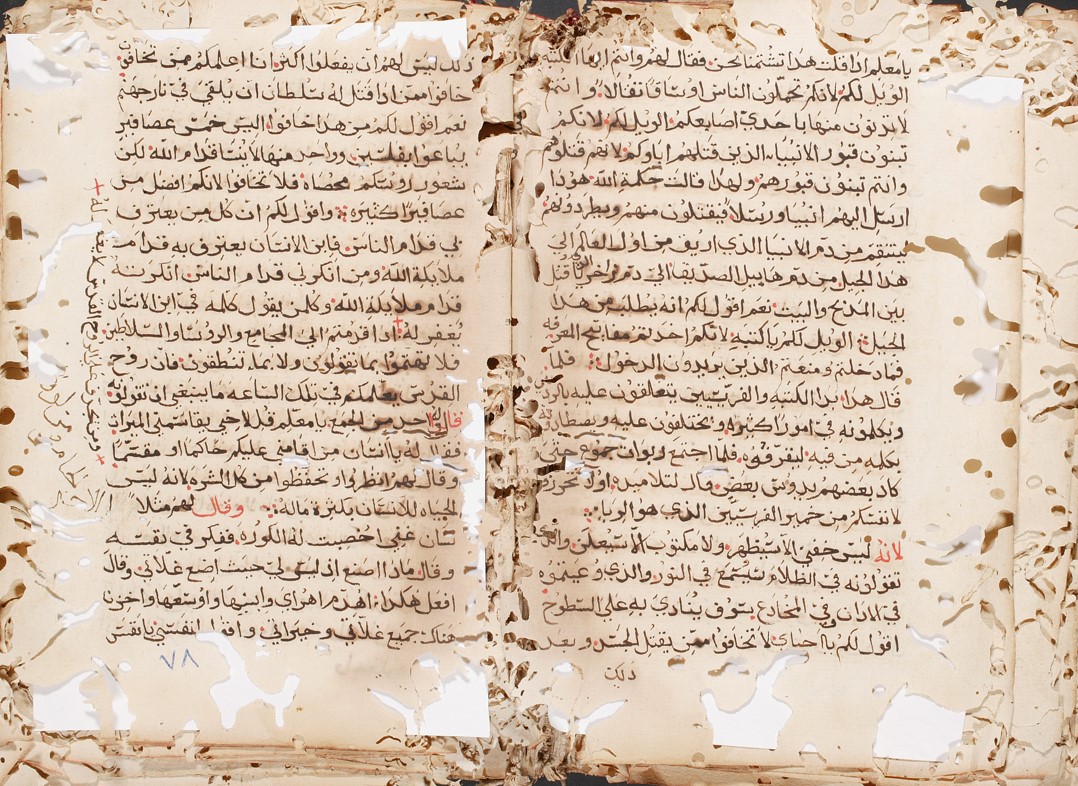 يا معلم اذا قلت هذا تشتمنا نحن. فقال لهم وانتم ايها الكتبه
الويل لكم لانكم تحملون الناس اوساقا ثقالا. وانتم
لا تدنون منها باحدي اصابعكم. الويل لكم لانكم
تبنون قبور الانبياء الذين قتلهم اباوكم لانهم قتلوهم
وانتم تبنون قبورهم ولهذا قالت حكمة الله هوذا
ارسل اليهم انبيا ورسلا فيقتلون منهم ويطردونهم
لينتقم من دم الانبيا الذي اريق من اول العالم الي
هذا الجيل من دم هابيل الصديق الي دم زخريا قتل
بين المذبح والبيت نعم اقول لكم انه يطلب من هذا
الجيل: الويل لكم يا كتبه لانكم اخدتم مفاتيح المعرفه
فما دخلتم ومنعتم الذين يريدون الدخول: فلما
قال هذا بدا الكتبه والفريسيين
ويكلمونه في امور كثيره ويختلفون عليه
بكلمه من فيه ليقرفوه. فلما اجتمع ربوات جموع حتي
كاد بعضهم يدوس بعض قال لتلاميده اولا تحرزوا
لانفسكم من خمير الفريسيين الذي هو الريا:
لانه ليس خفي الا سيظهر ولا مكتوب الا سيعلن والذي
تقولونه في الظلام سيسمع في النور والذي وعيتموه
في الادان وفي المخادع سوف ينادي به علي السطوح
اقول لكم يا احباي لا تخافوا ممن يقتل الجسد وبعد
ذلك
ذلك ليس لهم ان يفعلوا اكثر انا اعلمكم ممن تخافون
خافوا ممن اذا قتل له سلطان ان يلقي في نار جهنم
نعم اقول لكم من هذا خافوا اليس خمس عصافير
يباعوا بفلسين. وواحد منها لا ينسا قدام الله لكن
شعور روسكم محصاه فلا تخافوا لانكم افضل من
عصافير كثيره: واقول لكم ان كل من يعترف
بي قدام الناس فابن الانسان يعترف به قدام
ملايكة الله ومن انكرني قدام الناس انكرته
قدام ملايكة الله وكل من يقول كلمه في ابن الانسان
يغفر له: اذا قدمتم الي المجامع والروسا والسلاطين
فلا تهتموا بما تقولون ولا بما تنطقون فان روح
القدس يعلمكم في تلك الساعه ما ينبغي ان تقولوه
قال له واحد من الجمع يا معلم قل لاخي يقاسمني الميراث
فقال له يا انسان من اقامني عليكم حاكما او مقسما
وقال لهم انظروا وتحفظوا من كل الشره لانه ليس
الحياه للانسان بكثرة ماله: وقال لهم مثلا
انسان غني اخصبت له الكوره. ففكر في نفسه
وقال ماذا اصنع اذ ليس لي حيث اضع غلاتي وقال
افعل هكذا: اهدم اهراي وابنيها واوسعها واخزن
هناك جميع غلاتي وخيراتي واقول لنفسي يا نفس
٧٨